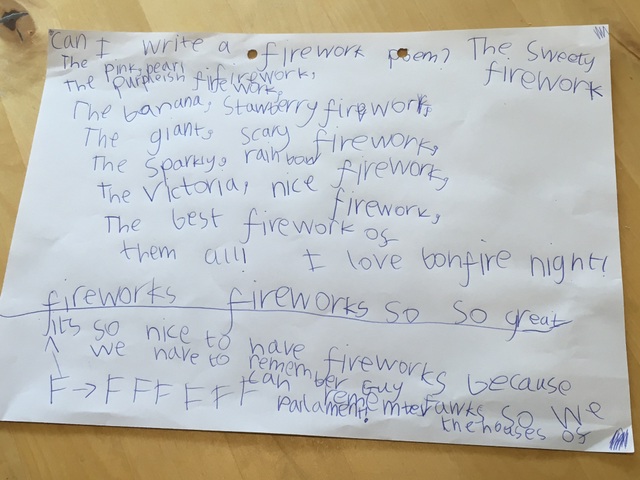 can I write a firework poem? The sweety firework
The pink, pearl firework,
the purpleish firework,
The banana, stawberry firework,
The giant, scary firework,
The sparkly, rainbow firework,
The victoria, nice firework,
The best firework of
them all! I love bonfire night!
fireworks fireworks so so great
its so nice to have fireworks because
we have to remember Guy Fawks so we
can rememter the houses of
Parlament!
F → F F F F F F